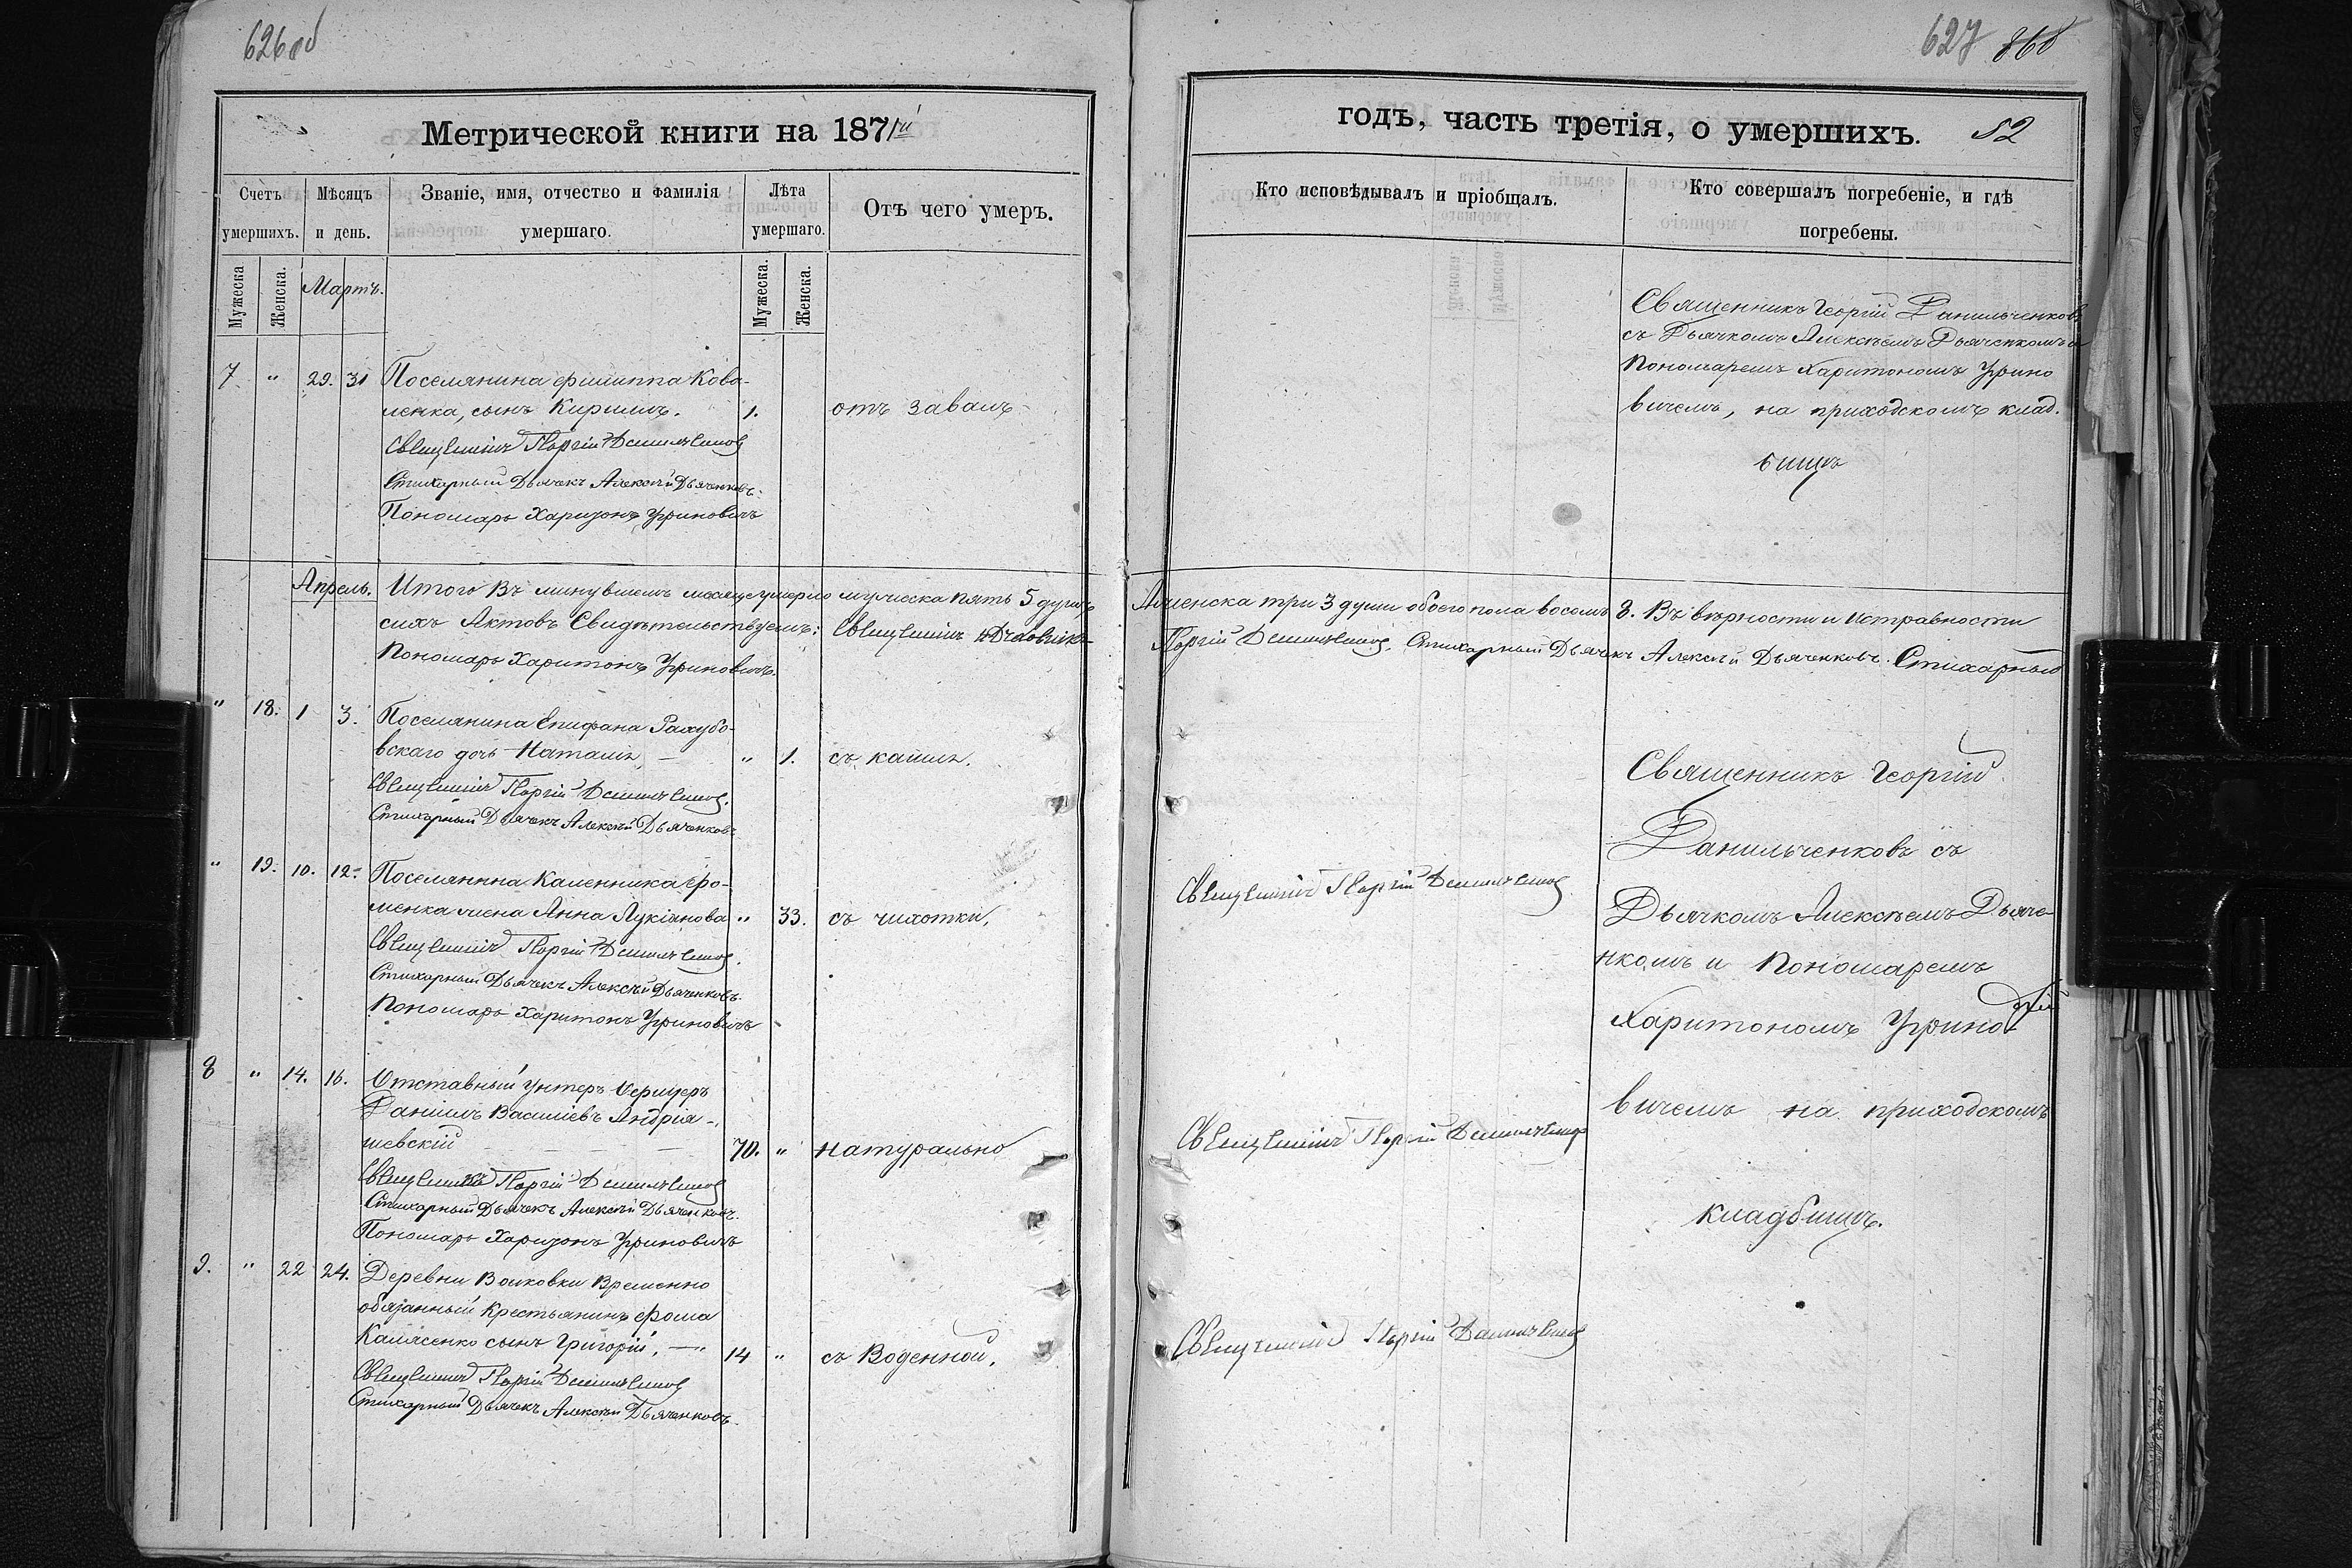 626 об
Метрической книги на 1871й
Счетъ умершихъ.
Мѣсяцъ и день.
Званіе, имя, отчество и фамилія умершаго.
Лѣта умершаго.
Отъ чего умеръ.
Мужеска
Женска.
Мартъ.
Мужеска.
Женска.
7 " 29. 31 Поселянина Филиппа Кова-
ленка, сынъ Кирилъ. 1. отъ завалъ
Священникъ Георгій Данильченковъ
Стихарный Дьячекъ Алексѣй Дьяченковъ.
Пономарь Харитонъ Угриновичъ
Апрель. Итого Въ минувшемъ месяце умерло мужеска пять 5 душъ
сихъ Актовъ Свидѣтельствуемъ: Священникъ
Пономарь Харитонъ Угриновичъ.
" 18. 1 3. Поселянина Епифана
вскаго дочь Наталія — " 1. съ кашля.
Священникъ Георгій Данильченковъ.
Стихарный Дьячекъ Алексѣй Дьяченковъ
" 19. 10. 12. Поселянина Каленника Фо-
менка жена Анна Лукіянова " 33. съ чихотки.
Священникъ Георгій Данильченковъ.
Стихарный Дьячекъ Алексѣй Дьяченковъ.
Пономарь Харитонъ Угриновичъ
8 " 14. 16. Отставный Унтеръ Офицеръ
Даніилъ Василіевъ Андрія-
шевскій 70. " натурально
Священникъ Георгій Данильченковъ
Стихарный Дьячекъ Алексѣй Дьяченковъ.
Пономарь Харитонъ Угриновичъ
9. " 22 24. Деревни Волковки Временно
обязанный Крестьянинъ Фома
сынъ Григорій. — 14 " съ Воденной.
Священникъ Георгій Данильченковъ
Стихарный Дьячекъ Алексѣй Дьяченковъ.
627
годъ, часть третія, о умершихъ. 52
Кто исповѣдывалъ и пріобщалъ.
Кто совершалъ погребеніе, и гдѣ погребены.
Священникъ Георгій Данильченковъ
съ Дьячкомъ Алексѣемъ Дьяченкомъ и
Пономаремъ Харитономъ Угрино
вичемъ, на приходскомъ клад.
бищѣ
Женска три 3 души обоего пола восемь 8. Въ вѣрности и исправности
Георгій Данильченковъ. Стихарный Дьячекъ Алексѣй Дьяченковъ. Стихарный
Священникъ Георгій
Данильченковъ съ
Священникъ Георгій Данильченковъ
Дьячкомъ Алексѣемъ Дьяче-
нкомъ и Пономаремъ
Харитономъ Угрино
вичемъ на приходскомъ
Священникъ Георгій Данильченковъ
кладбищѣ.
Священникъ Георгій Данильченковъ